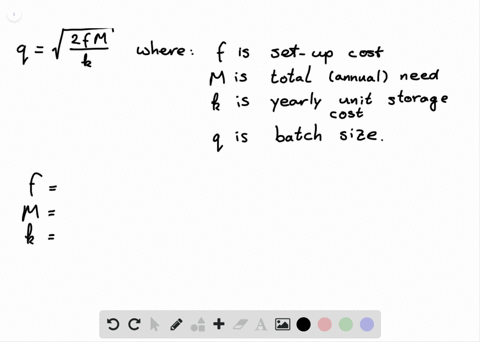 q = √(2fM/k) where: f is set-up cost
M is total (annual) need
k is yearly unit storage
cost
q is batch size.
f =
M =
k =